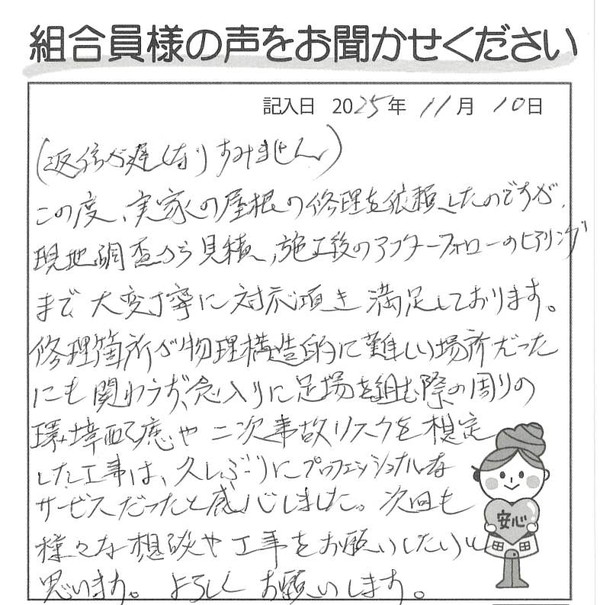 組合員様の声をお聞かせください
記入日 2025年 11月 10日
(返信が遅くなりすみません)
この度、実家の屋根の修理を依頼したのですが、
現地調査から見積、施工後のアフターフォローのヒアリング
まで大変丁寧に対応頂き満足しております。
修理箇所が物理構造的に難しい場所だった
にも関わらず、念入りに足場を組む際の周りの
環境配慮や二次事故リスクを想定
した工事は、久しぶりにプロフェッショナルな
サービスだったと感じました。次回も
様々な相談や工事をお願いしたいと
思います。よろしくお願いします。
安心